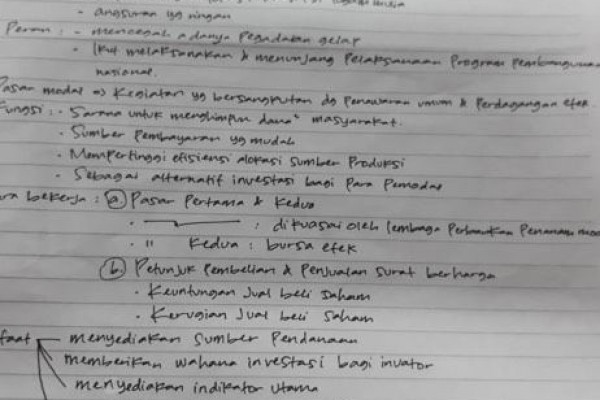 - angsuran yg ringan
Peran : - mencegah adanya Pegadaian gelap
- Ikut melaksanakan & menunjang Pelaksanaan Program Pembangunan
nasional.
Pasar modal => Kegiatan yg bersangkutan dg Penawaran umum & Perdagangan efek.
Fungsi : - Sarana untuk menghimpun dana" masyarakat.
- Sumber Pembayaran yg mudah
- Mempertinggi efisiensi alokasi sumber Produksi
- Sebagai alternatif investasi bagi Para Pemodal
ara bekerja : (a.) Pasar Pertama & Kedua
- : dikuasai oleh lembaga Penanam
- " Kedua : bursa efek
(b.) Petunjuk Pembelian & Penjualan surat berharga
- Keuntungan Jual beli saham
- Kerugian Jual beli saham
faat menyediakan Sumber Pendanaan
memberikan wahana investasi bagi invator
menyediakan indikator utama